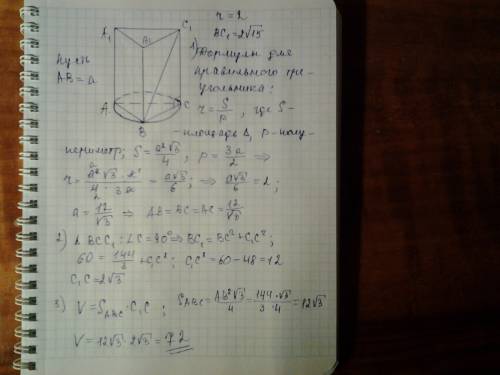 A₁ C₁ r = 2
B₁ BC₁ = 2√15
Пусть
AB = a
A C
B
1) Формулы для
правильного тре-
угольника:
r = S/p, где S-
площадь Δ, p - полу-
периметр; S = a²√3/4, p = 3a/2 ⇒
r = a²√3 · 2/4 · 3a = a√3/6; ⇒ a√3/6 = 2;
a = 12/√3 ⇒ AB = BC = AC = 12/√3
2) Δ BCC₁: ∠C = 90° ⇒ BC₁ = BC² + C₁C²;
60 = 144/3 + C₁C²; C₁C² = 60 - 48 = 12
C₁C = 2√3
3) V = S_ABC · C₁C; S_ABC = AB²√3/4 = 144 · √3/3 · 4 = 12√3
V = 12√3 · 2√3 = 72